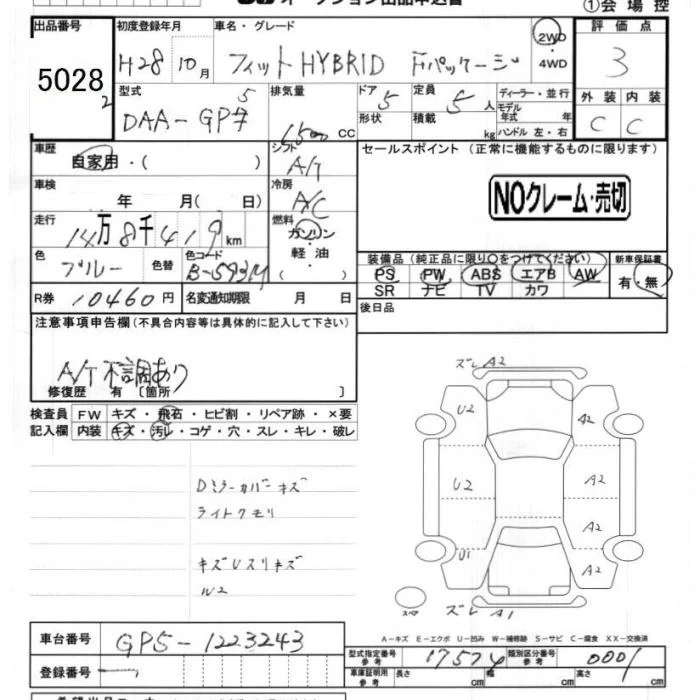 ①会場控
出品番号 初度登録年月 車名・グレード 評価点
5028 H28 10月 フィットHYBRID Fパッケージ 2WD 3
2 ・4WD
型式 排気量 ドア 定員 ディーラー・並行 外装 内装
DAA-GP5 1500 CC 5 5人 モデル年式 年 C C
形状 積載 kg ハンドル 左・右
車歴 シフト セールスポイント (正常に機能するものに限ります)
自家用・( ) A/T
車検 冷房 NOクレーム・売切
年 月( 日) A/C
走行 燃料
14万8千419km ガソリン
軽油
色 色替 色コード 装備品(純正品に限り○をつけてください) 新車保証書
ブルー B-593M ・( ) PS PW ABS エアB AW 有・無
SR ナビ TV カワ
R券 10460円 名変通知期限 月 日 後日品
注意事項申告欄(不具合内容等は具体的に記入して下さい)
A/T 不調あり
修復歴 有 〔箇所 〕
検査員 FW キズ・飛石・ヒビ割・リペア跡・×要
記入欄 内装 キズ・汚レ・コゲ・穴・スレ・キレ・破レ
ズレ A2
U2 A2
U2 A2
A2
U1 A2
Dミラーカバーキズ
ライトクモリ
キズUスリキズ
W2
スペア ズレ A1
A-キズ E-エクボ U-凹み W-補修跡 S-サビ C-腐食 XX-交換済
車台番号 GP5-1223243
型式指定番号 参考 17574 類別区分番号 参考 0001
登録番号 車庫証明用 参考 長さ cm 幅 cm 高さ cm